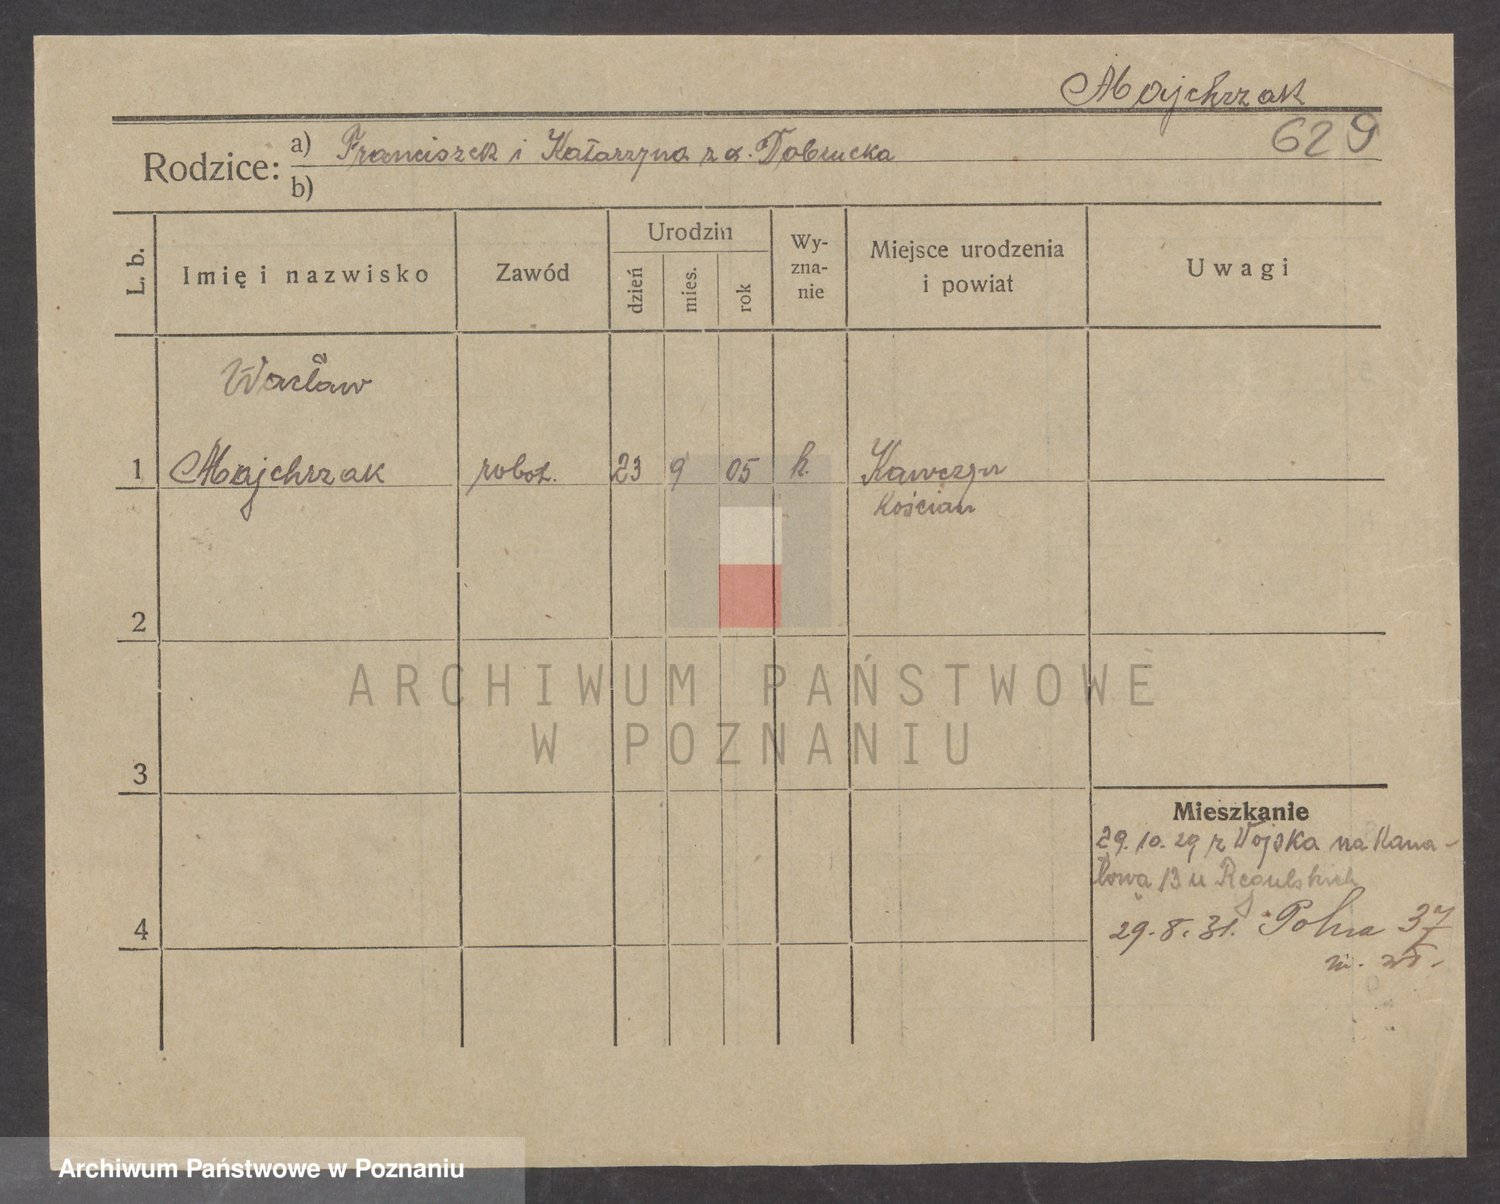 Majchrzak
629
Rodzice:
a) Franciszek i Katarzyna z d. Dobrucka
b)
L. b.
Imię i nazwisko
Zawód
Urodzin
dzień
mies.
rok
Wy-
zna-
nie
Miejsce urodzenia
i powiat
Uwagi
Wacław
1 Majchrzak robot. 23 9 05 k. Kawczyn
Kościan
2
ARCHIWUM PAŃSTWOWE
W POZNANIU
3
Mieszkanie
29.10.29 z Wojska na Kana-
łowa 13 u Regulskich
4
29.8.31. Polna 37
m. wł.
Archiwum Państwowe w Poznaniu